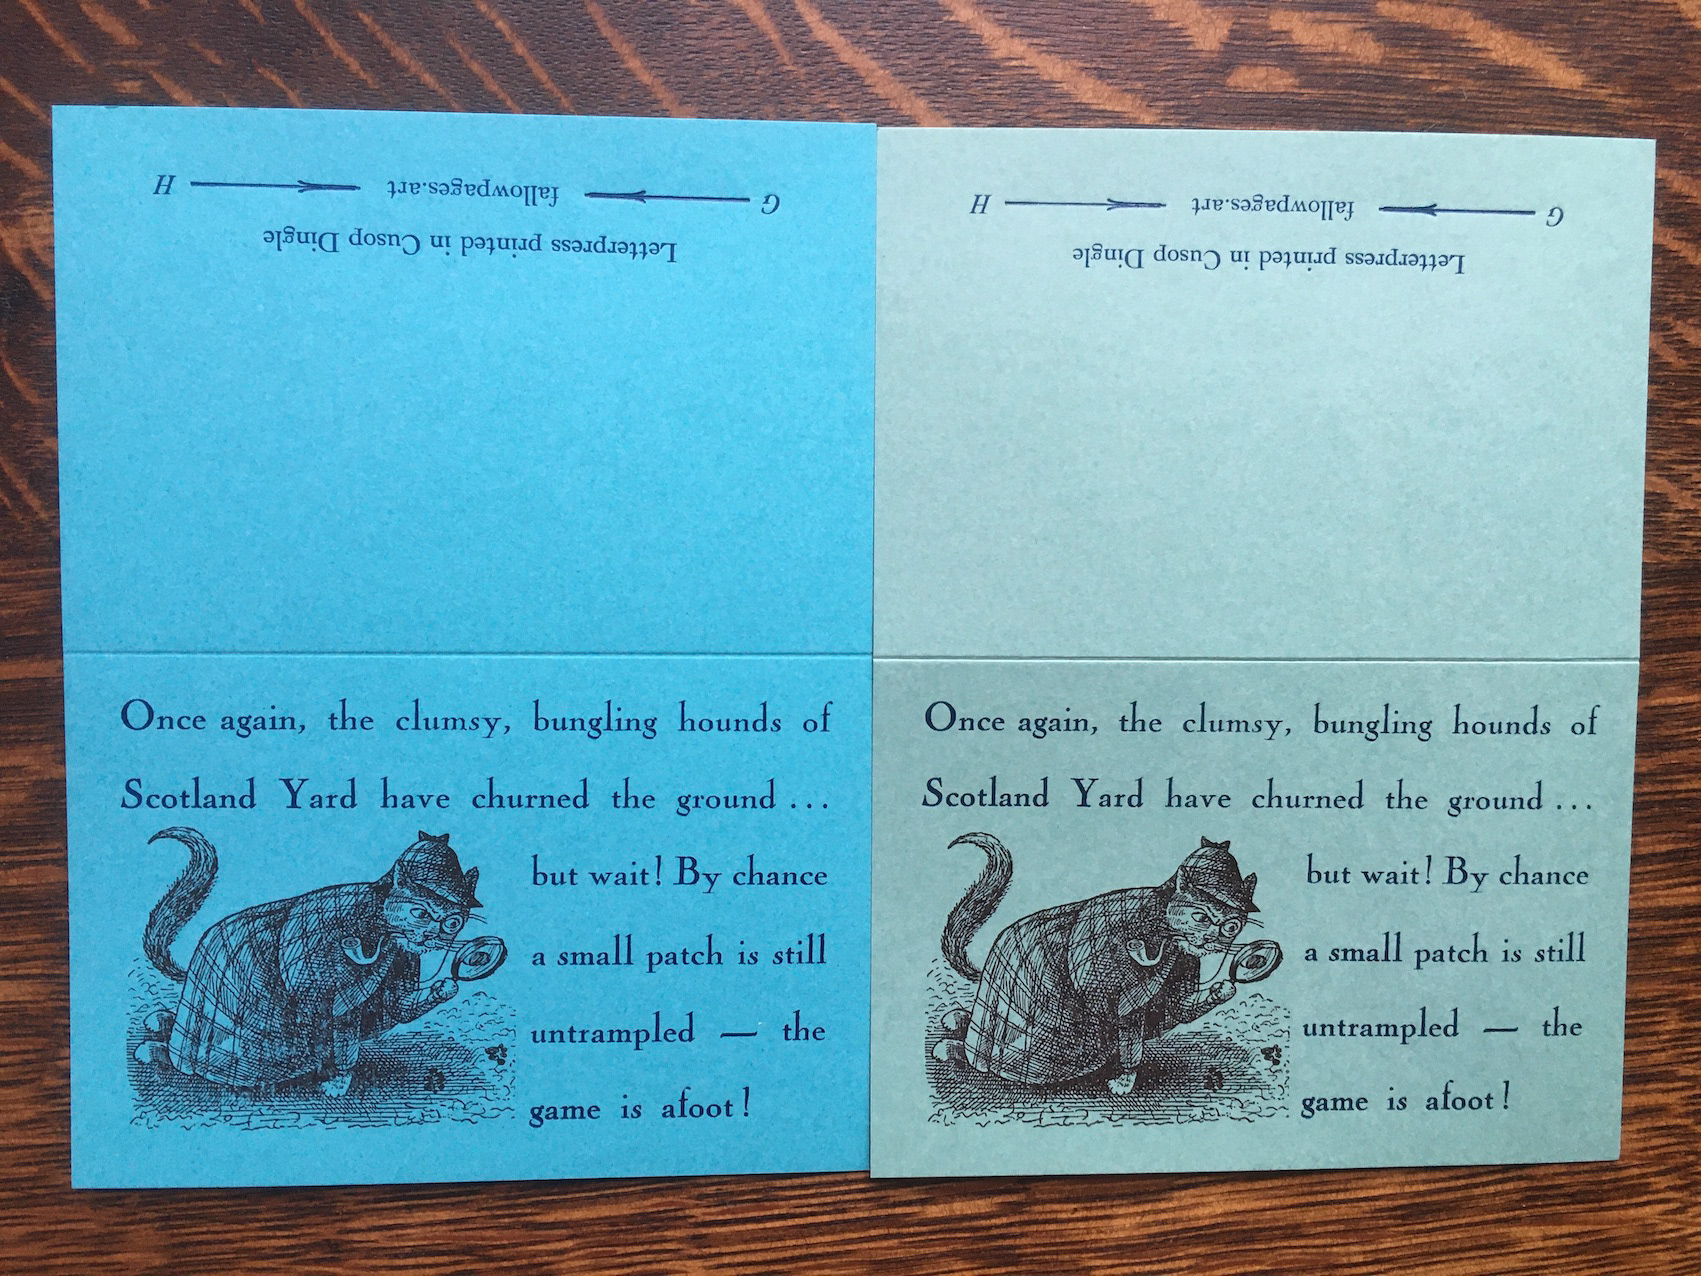 Letterpress printed in Cusop Dingle
G fallowpages.art H
Once again, the clumsy, bungling hounds of
Scotland Yard have churned the ground ...
but wait! By chance
a small patch is still
untrampled — the
game is afoot!
Letterpress printed in Cusop Dingle
G fallowpages.art H
Once again, the clumsy, bungling hounds of
Scotland Yard have churned the ground ...
but wait! By chance
a small patch is still
untrampled — the
game is afoot!